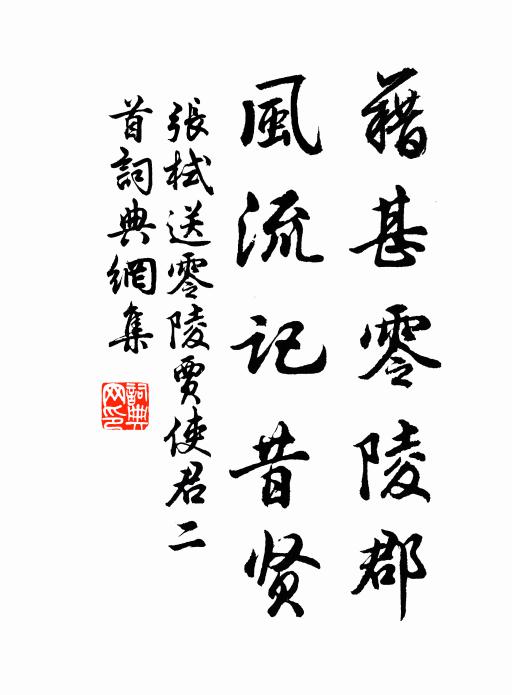 藉甚零陵郡
風流記昔贤
張栻送零陵賈使君二
首詞典網集
詞典
网印